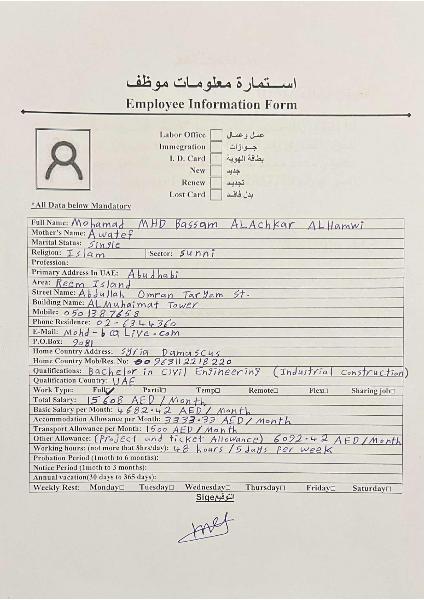 استمارة معلومات موظف
Employee Information Form
Labor Office عمل وعمال
Immegration جوازات
I. D. Card بطاقة الهوية
New جديد
Renew تجديد
Lost Card بدل فاقد
*All Data below Mandatory
Full Name: Mohamad MHD Bassam ALAchkar ALHamwi
Mother's Name: Awatef
Marital Status: Single
Religion: Islam Sector: Sunni
Profession:
Primary Address In UAE: Abudhabi
Area: Reem Island
Street Name: Abdullah Omran Taryam St.
Building Name: ALMuhaimat Tower
Mobile: 0501387658
Phone Residence: 02-6344360
E-Mail: Mohd-b@Live.com
P.O.Box: 9081
Home Country Address: Syria Damascus
Home Country Mob/Res. No: 00963112218220
Qualifications: Bachelor in Civil Engineering (Industrial Construction)
Qualification Country: UAE
Work Type: Full Partial Temp Remote Flexi Sharing job
Total Salary: 15608 AED / Month
Basic Salary per Month: 4682.42 AED / Month
Accommodation Allowance per Month: 3333.33 AED / Month
Transport Allowance per Month: 1500 AED / Month
Other Allowance: (Project and ticket Allowance) 6092.42 AED/Month
Working hours: (not more that 8hrs/day): 48 hours / 5 days per week
Probation Period (1moth to 6 months):
Notice Period (1moth to 3 months):
Annual vacation(30 days to 365 days):
Weekly Rest: Monday Tuesday Wednesday Thursday Friday Saturday
Sige التوقيع